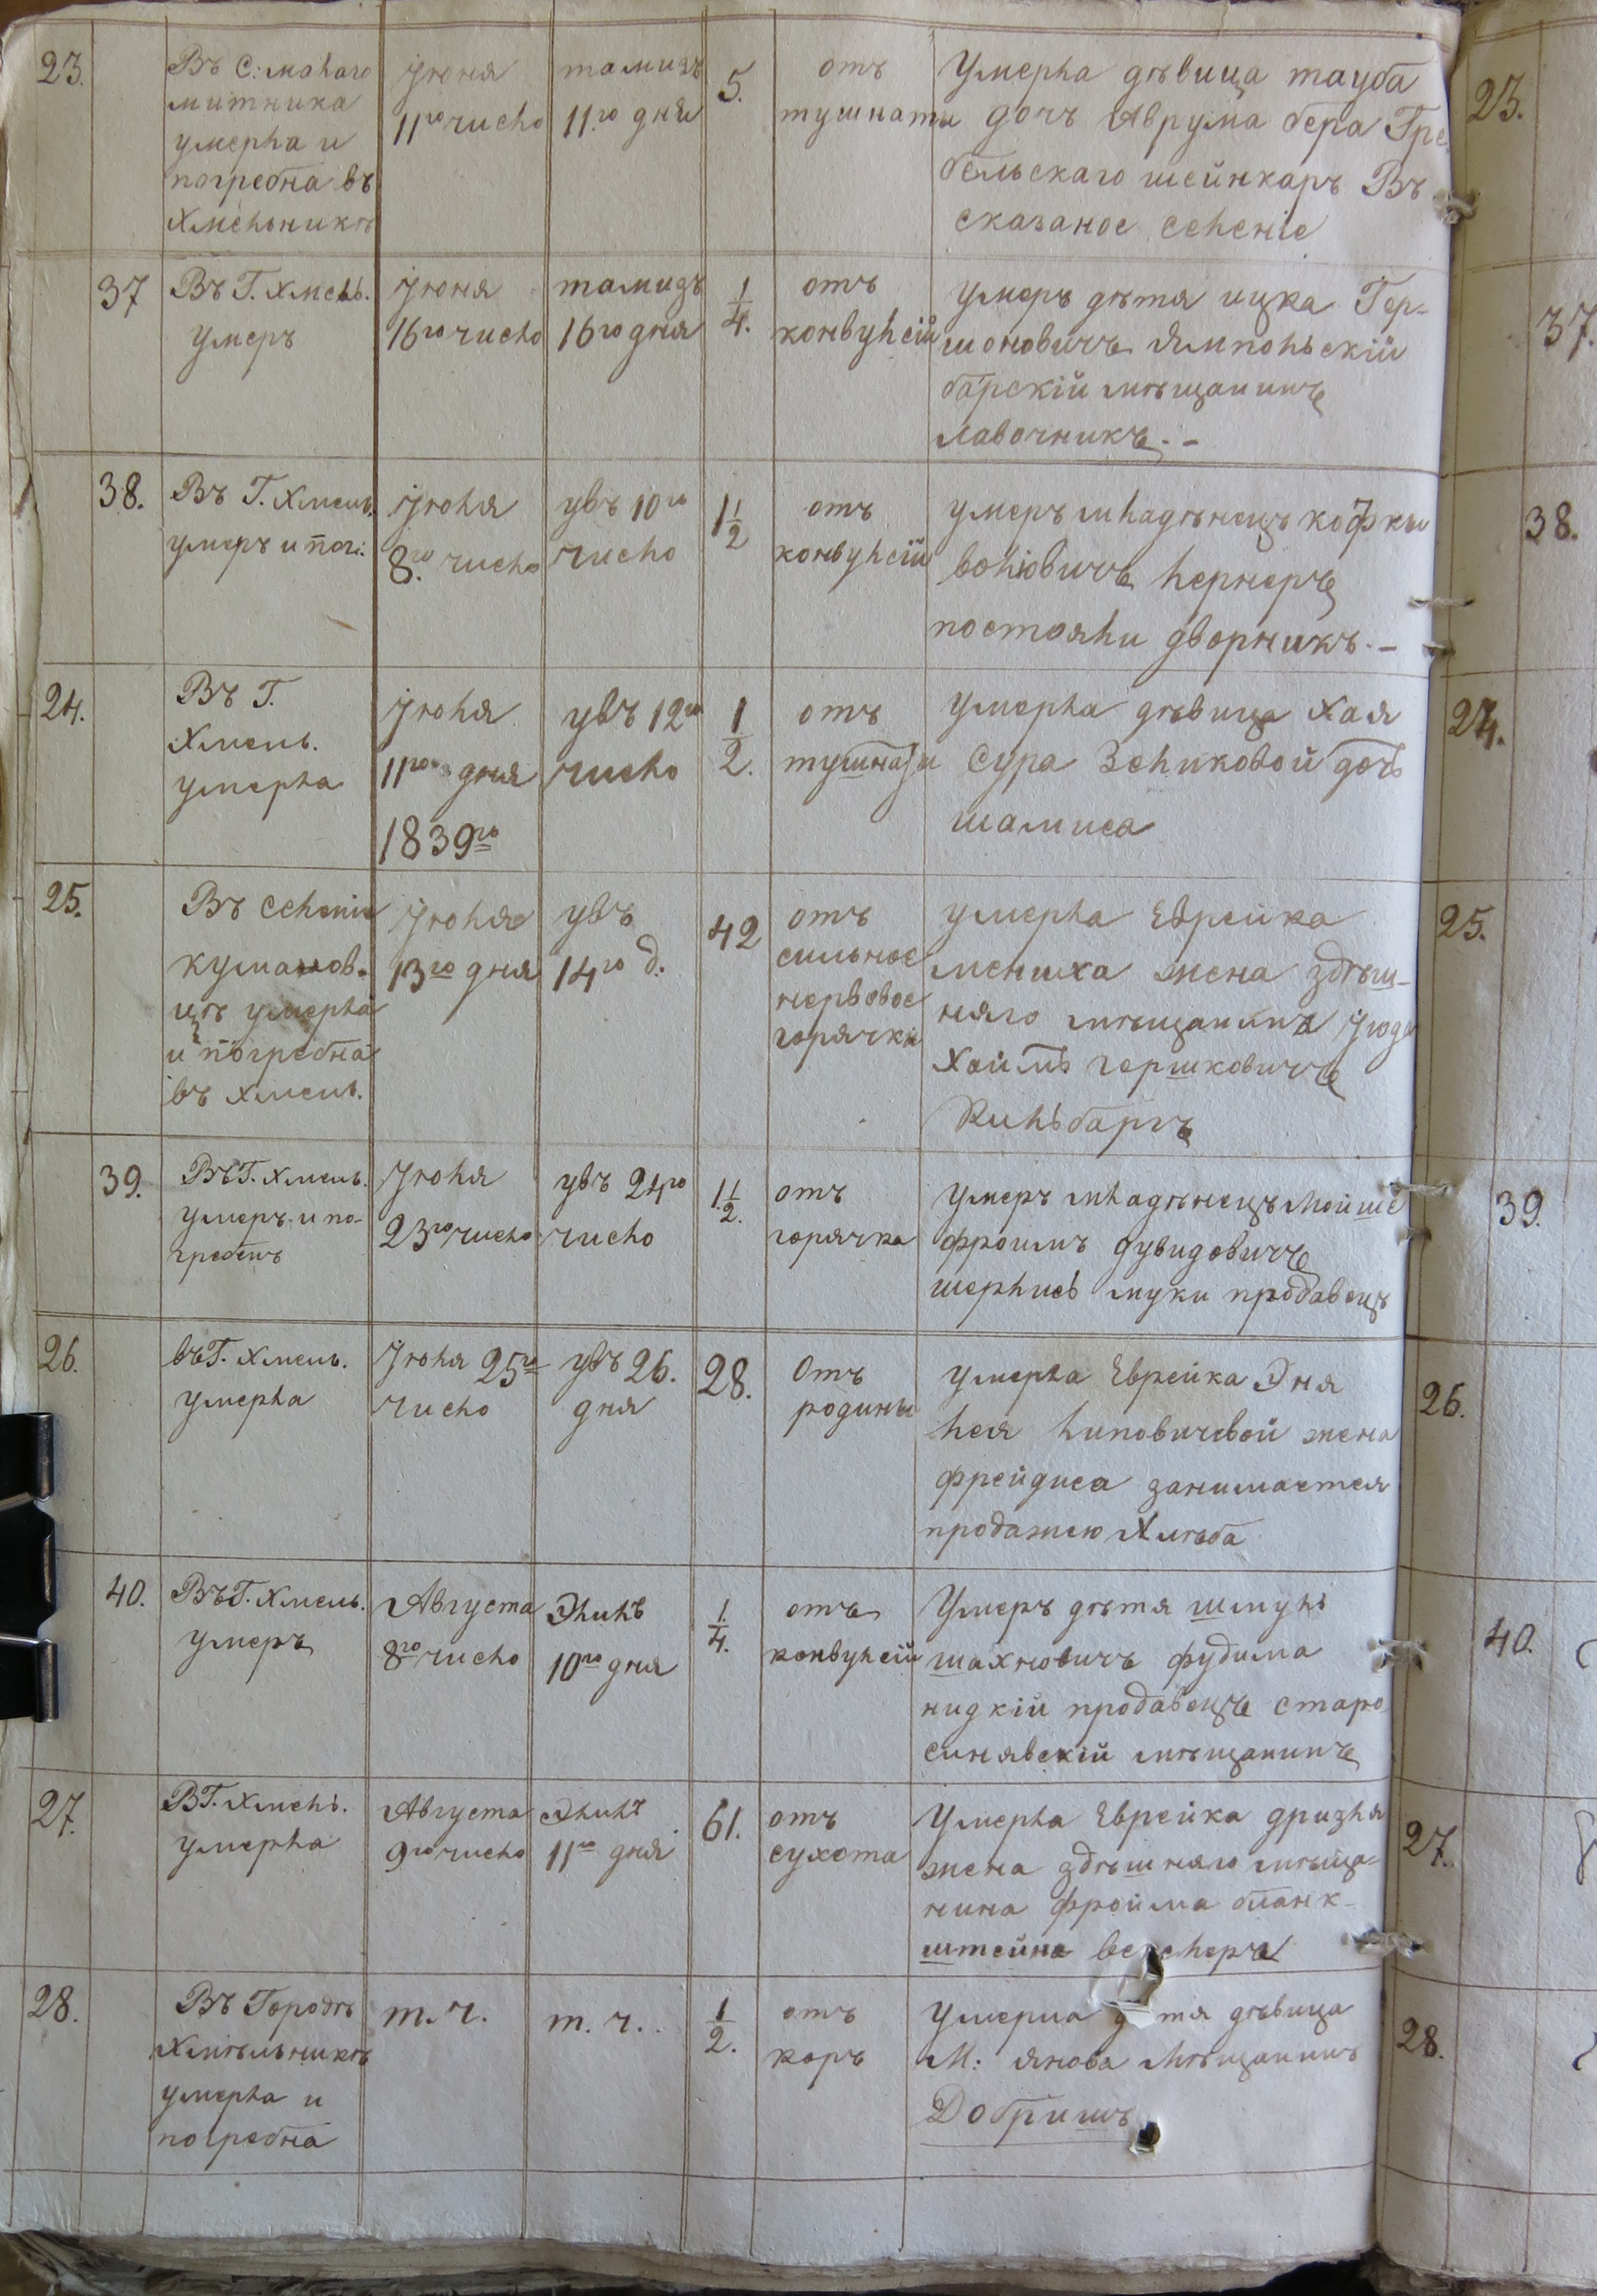 23.
Въ С: малаго
митника
умерла и
погребна въ
Хмельникъ
Іюня
11го число
тамизъ
11.го дня
5.
отъ
тушнати
Умерла дѣвица тауба
дочъ Аврума бера Гре
бельскаго шейнкаръ Въ
сказаное селеніе
23.
37
Въ Г. Хмель.
умеръ
Іюня
16го число
тамидъ
16го дня
1/4.
отъ
конвулсій
умеръ дѣтя ицка Гер-
шоновичъ Ямпольскій
барскій мѣщанинъ
лавочникъ. -
37.
38.
Въ Г. Хмель.
умеръ и пог:
Іюля
8го число
увъ 10го
число
1 1/2
отъ
конвулсій
умеръ младѣнецъ кофкы
волювичъ лернеръ
постояли дворникъ. -
38.
24.
Въ Г.
Хмель.
умерла
Іюля
11го дня
1839го
увъ 12го
число
1/2.
отъ
умерла дѣвица Хая
Сура Зеликовой дочь
шамиса
24.
25.
Въ селеніе
куманов-
цѣ умерла
и погребна
въ хмель.
Іюля
13го дня
увъ
14го д.
42
отъ
сильное
нервовое
горячки
умерла Еврейка
мениха жена здѣш-
няго мѣщанина Іюда
Хаймъ гершковичъ
Кильбаргъ
25.
39.
Въ Г. Хмель.
умеръ и по-
гребенъ
Іюля
23го число
увъ 24го
число
1 1/2.
отъ
горячка
умеръ младѣнецъ Мойше
фроимъ дувидовичъ
шерлись муки продавецъ
39.
26.
въ Г. хмель.
умерла
Іюля 25го
число
увъ 26.
дня
28.
Отъ
родины
умерла Еврейка Эня
лея липовичевой жена
фрейдиса занимается
продажею Хлѣба
26.
40.
Въ Г. Хмель.
умеръ
Августа
8го число
Элилъ
10го дня
1/4.
отъ
конвулсій
Умеръ дѣтя шмуль
шахновичъ фудима
нидкій продавецъ старо
синявскій мѣщанинъ
40.
27.
В Г. хмель.
умерла
Августа
9го число
Элилъ
11го дня
61.
отъ
сухота
Умерла Еврейка дризля
жена здѣшняго мѣща-
нина фройма бланк-
штейна
27.
28.
Въ Городѣ
Хмѣльникѣ
умерла и
погребна
т. ч.
т. ч.
1/2.
отъ
коръ
Умерла дѣвица
М: янова Мѣщанинъ
Добришъ
28.